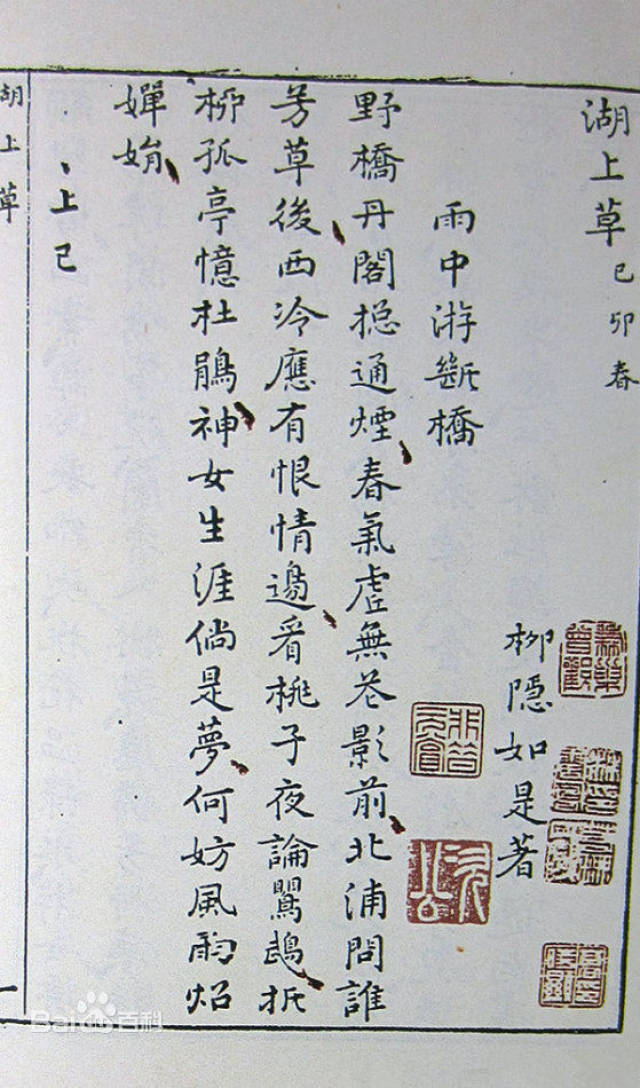 湖上草 己卯春
柳隱如是著
雨中游斷橋
野橋丹閣捴通煙春氣虛無花影前北浦問誰
芳草後西泠應有恨情邊看桃子夜論鸚鵡折
柳孤亭憶杜鵑神女生涯倘是夢何妨風雨照
嬋娟
上巳
湖上草
一
Baidu百科